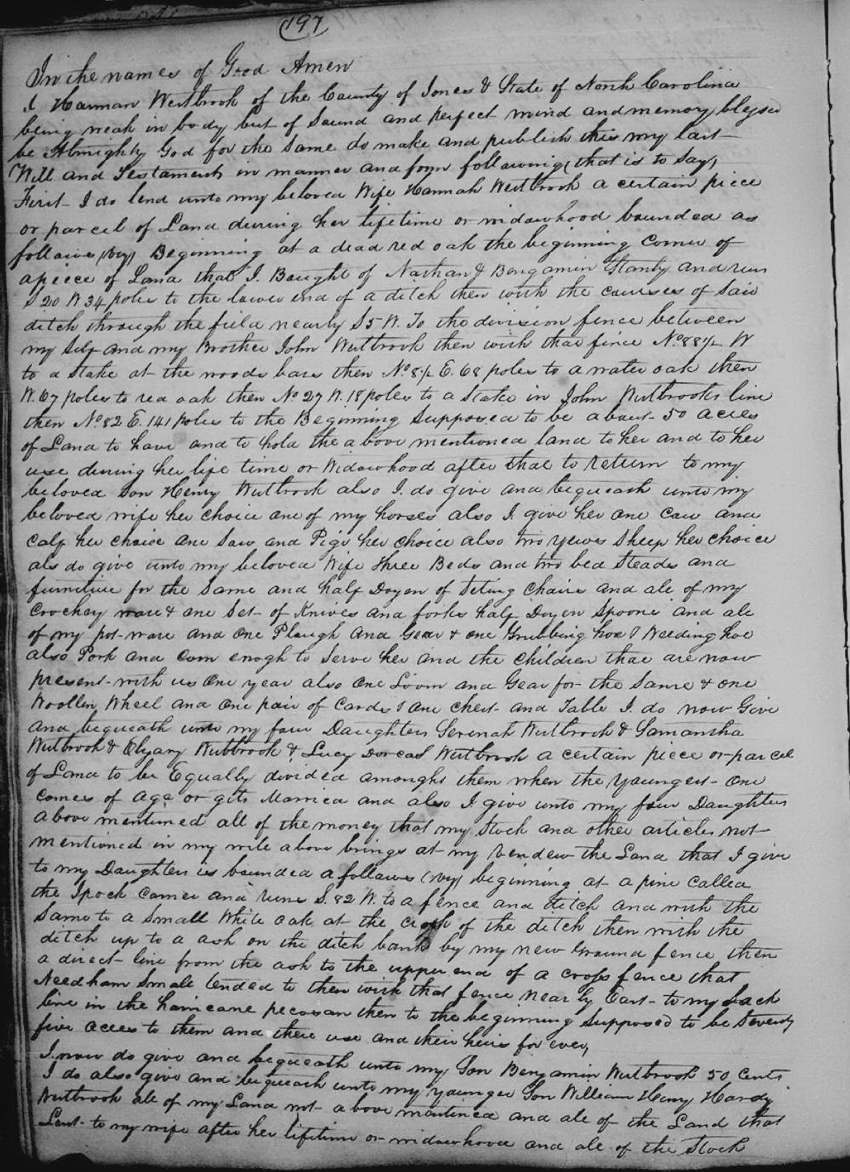 197
In the names of God Amen
I Harman Westbrook of the County of Jones & State of North Carolina
being weak in body but of Sound and perfect mind and memory blessed
be Almighty God for the same do make and publish this my last
Will and Testament in manner and form following (that is to Say)
First I do lend unto my beloved Wife Hannah Westbrook a certain piece
or parcel of Land during her lifetime or widowhood bounded as
follows (viz) Beginning at a dead red oak the beginning Corner of
a piece of Land that I Baught of Nathan & Bengamin Stanly and runs
S 20 W 34 poles to the lower end of a ditch then with the courses of said
ditch through the field nearly S 5 W. To the division fence between
my Self and my Brother John Westbrook then with that fence No 88½ W
to a Stake at the woods bars then No 8½ E. 68 poles to a water oak then
W. 67 poles to red oak then No 27 W. 18 poles to a Stake in John Westbrooks line
then No 82 E. 141 poles to the Beginning Supposed to be about 50 acres
of Land to have and to hold the above mentioned land to her and to her
use during her life time or Widowhood after that to return to my
beloved Son Henry Westbrook also I do give and bequeath unto my
beloved wife her choice one of my horses also I give her one Cow and
Calf her choice one Sow and Pigs her choice also two yewes Sheep her choice
als do give unto my beloved Wife three Beds and two bed Steads and
furniture for the Same and half Dozen of Seting Chairs and all of my
Crockery ware & one Set of Knives and forks half Dozen Spoons and all
of my pot-ware and One Plough And Gear & one Grubbing hoe & Weeding hoe
also Pork and corn enogh to Serve her and the children that are now
present with us One year also One Loom and Gear for the Same & one
Woollen Wheel and One pair of Cards & One Chest and Table I do now Give
And bequeath unto my four Daughters Serenah Westbrook & Samantha
Westbrook & Westbrook & Lucy Dorcas Westbrook a certain piece or parcel
of Land to be Equally divided amongst them when the Youngest One
comes of Age or gits Married and also I give unto my four Daughters
above mentioned all of the money that my Stock and other articles not
mentioned in my will above brings at my vendew the Land that I give
to my Daughters is bounded a follows (viz) beginning at a pine called
the Ipock Corner and runs S. 82 W. to a fence and ditch and with the
Same to a Small White oak at the of the ditch then with the
ditch up to a ash on the ditch bank by my new Ground fence then
a direct line from the ash to the upper end of a cross fence that
Needham Small tended to then with that fence nearly East to my back
line in the harricane pecosan then to the beginning Supposed to be Seventy
five acres to them and there use and their heirs for ever,
I now do give and bequeath unto my Son Benjamin Westbrook 50 Cents
I do also give and bequeath unto my younger Son William Henry Hardy
Westbrook all of my Land not above mentioned and all of the Land that
Lent to my wife after her lifetime or widowhood and all of the Stock